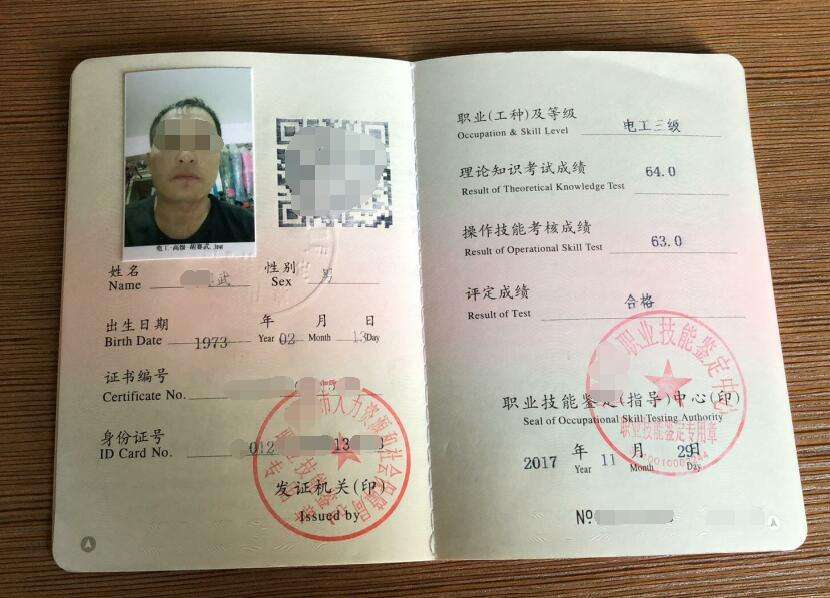 电工-高级 胡赛武.jpg
姓名 武 性别 男
Name Sex
出生日期 年 月 日
Birth Date 1973 Year 02 Month 13 Day
证书编号
Certificate No.
身份证号
ID Card No. 012 13
市人力资源和社会保障局
发证机关(印)
Issued by
职业(工种)及等级 电工三级
Occupation & Skill Level
理论知识考试成绩 64.0
Result of Theoretical Knowledge Test
操作技能考核成绩 63.0
Result of Operational Skill Test
评定成绩 合格
Result of Test
职业技能鉴定中心
职业技能鉴定(指导)中心(印)
Seal of Occupational Skill Testing Authority
职业技能鉴定专用章
2017 年 11 月 29 日
Year Month Day
№